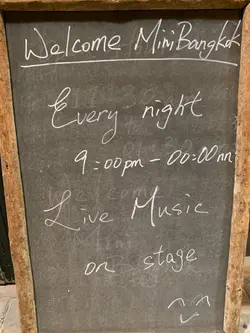 Welcome MiniBangkok
Every night
9:00pm - 00:00mn
Live Music
on stage